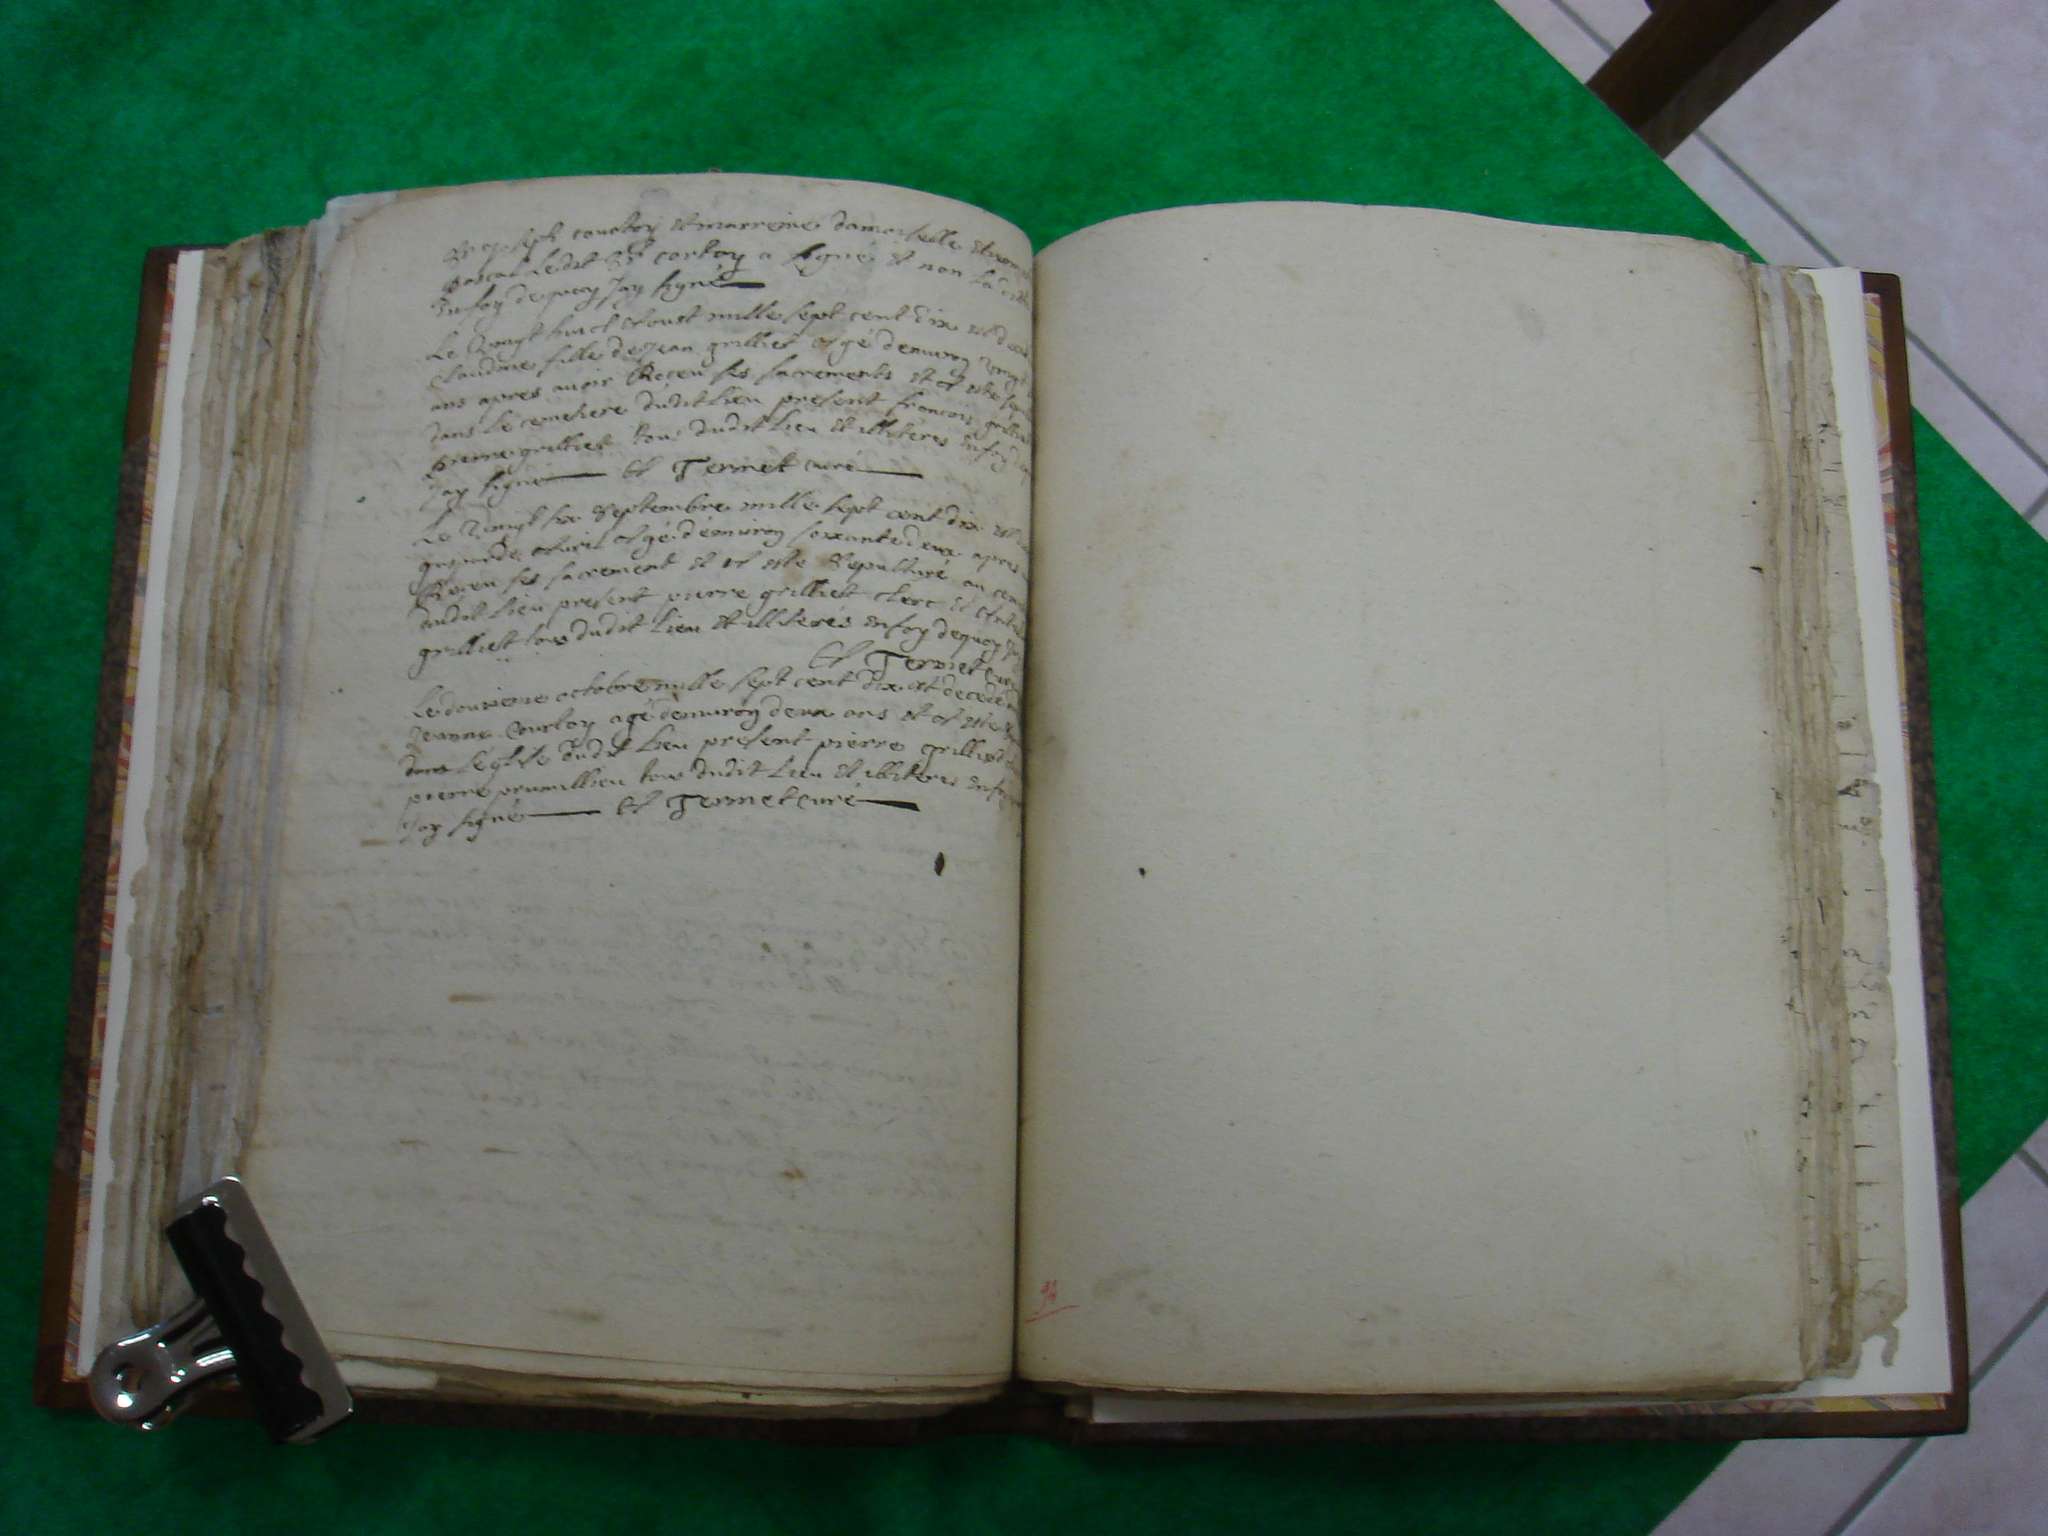 Sr Joseph courtoy et marreine damoiselle
pascal ledit Sr cortoy a signé et non la ditte
En foy dequoy Jay signé
Le vingt huict Aoust mille sept cent dix est
Claudine fille de Jean grilliet Agé denuiron vingt
ans apres auoir Receu ses sacrements et A este
dans le cemetiere dudit lieu present francois grilliet
pierre grilliet tous dudit lieu et illiteres En foy
Jay signé Cl Termet curé
Le vingt six Septembre mille sept cent dix est
Agé denuiron soixante deux apres
Receu ses sacrement et A este Sepulturé au
dudit lieu present pierre grilliet clerc et
grilliet tous dudit lieu et illiterés En foy dequoy
Cl Termet curé
Le douzieme octobre mille sept cent dix est decedé
Jeanne Courtoy agé denuiron deux ans et A este
dans Leglise dudit lieu present pierre grilliet
pierre prumillieu tous dudit lieu et illiteres En foy
Jay signé Cl Termet curé
94